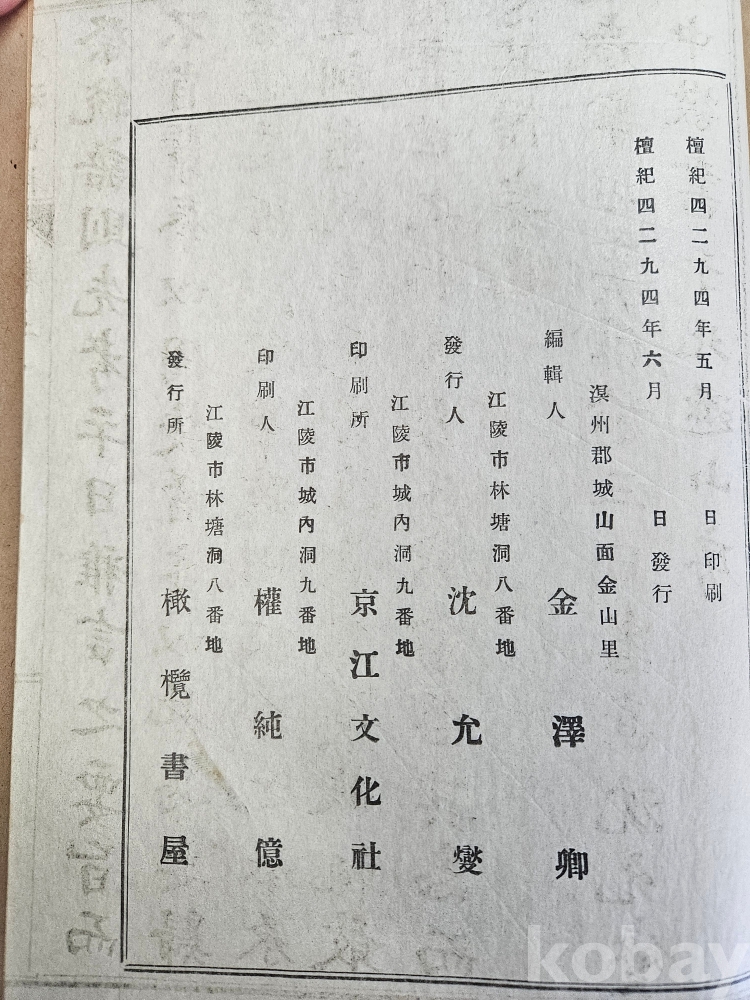 檀紀四二九四年五月 日印刷
檀紀四二九四年六月 日發行
溟州郡城山面金山里
編輯人 金澤卿
江陵市林塘洞八番地
發行人 沈允燮
江陵市城內洞九番地
印刷所 京江文化社
江陵市城內洞九番地
印刷人 權純億
江陵市林塘洞八番地
發行所 橄欖書屋
kobay